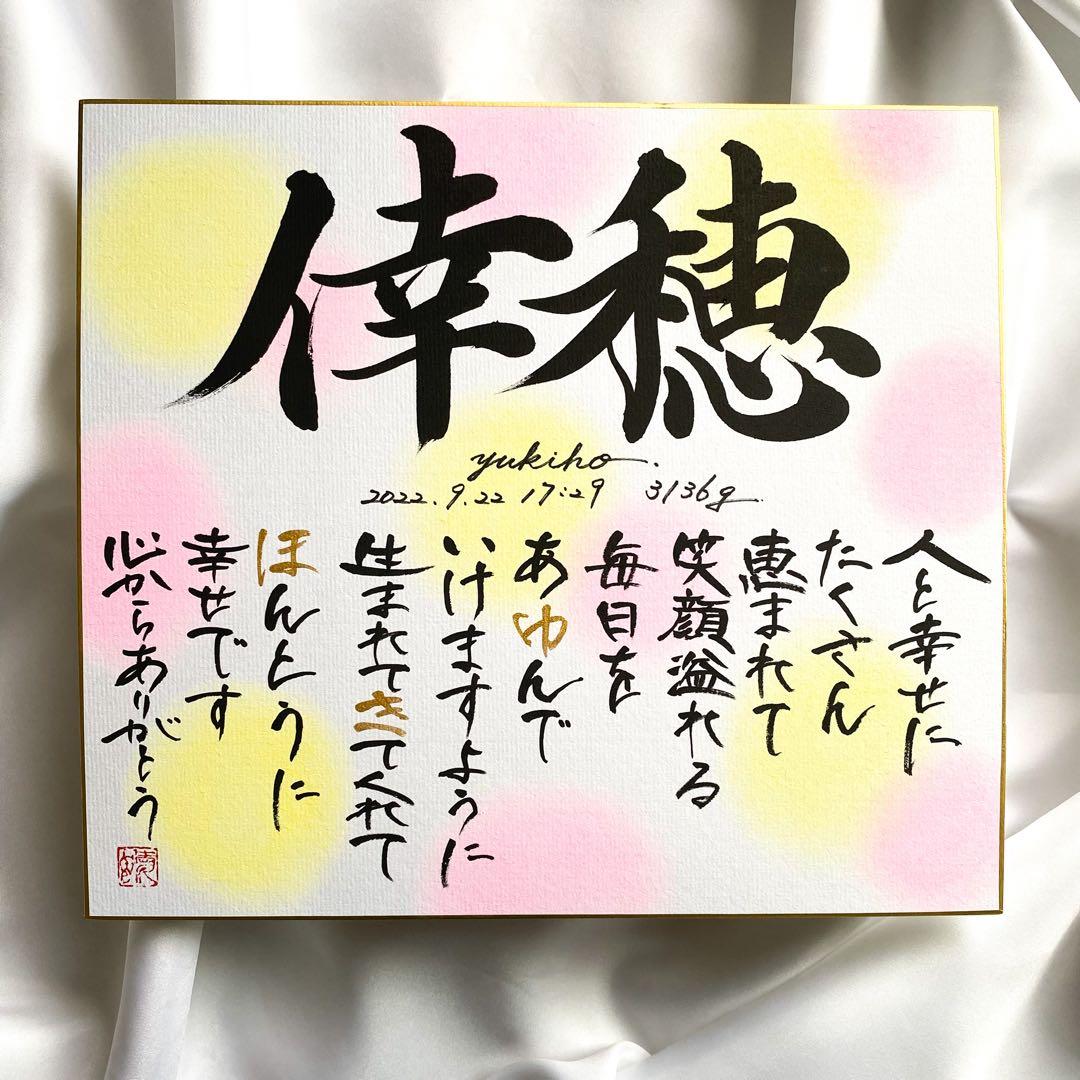 倖穂
yukiho.
2022.9.22 17:29 3136g.
人と幸せに
たくさん
恵まれて
笑顔溢れる
毎日を
あゆんで
いけますように
生まれてきてくれて
ほんとうに
幸せです
心からありがとう